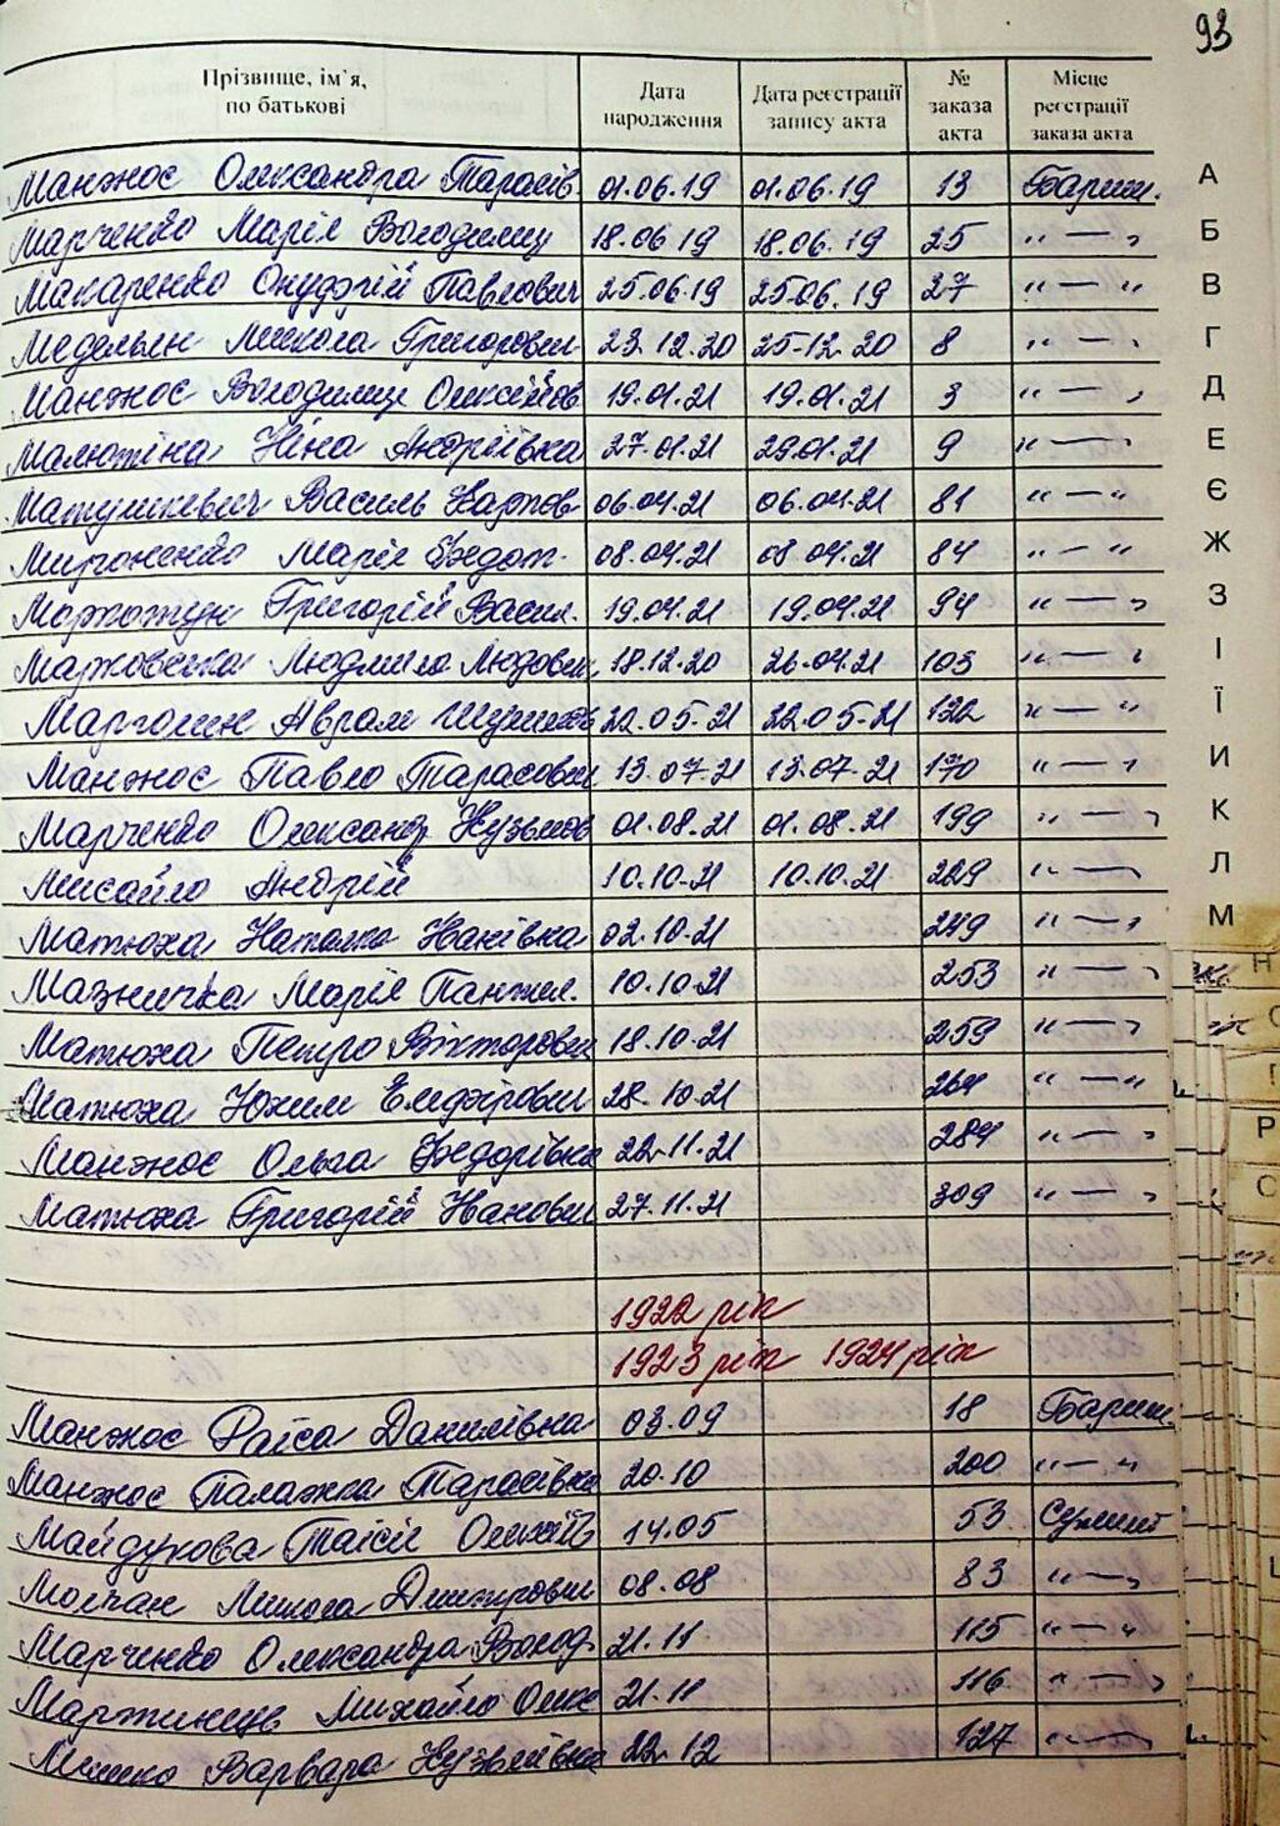 93
Прізвище, ім`я, по батькові Дата народження Дата реєстрації запису акта № заказа акта Місце реєстрації заказа акта
Манжос Олександра Тарасів. 01.06.19 01.06.19 13 Бариш.
А
Марченко Марія Володимир 18.06 19 18.06.19 25 "—"
Б
Макаренко Онуфрій Павлович 25.06.19 25.06.19 27 "—"
В
Медельян Микола Григорович 23.12.20 25-12.20 8 "—"
Г
Манжос Володимир Олексійов 19.01.21 19.01.21 3 "—"
Д
Малютіна Ніна Андріївка 27.01.21 29.01.21 9 "—"
Е
Матушкевич Василь Карпов 06.04.21 06.04.21 81 "—"
Є
Мироненко Марія Федот. 08.04.21 08.04.21 84 "—"
Ж
Григорій Васил. 19.04.21 19.04.21 94 "—"
З
Марковська Людмила Людовик. 18.12.20 26.04.21 103 "—"
І
Марголин Аврам 22.05.21 22.05-21 122 "—"
Ї
Манжос Павло Тарасович 13.07.21 13.07.21 170 "—"
И
Марченко Олександр Кузьмов 01.08.21 01.08.21 199 "—"
К
Мисайло Андрій 10.10.21 10.10.21 229 "—"
Л
Матюха Наталка Іванівка 02.10.21 249 "—"
М
Мазничка Марія Пантел. 10.10.21 253 "—"
Н
Матюха Петро Вікторович 18.10.21 259 "—"
Матюха Юхим Елифірович 28.10.21 264 "—"
Манжос Ольга Федорівка 22.11.21 284 "—"
Р
Матюха Григорій Іванович 27.11.21 309 "—"
С
1922 рік
1923 рік 1924 рік
Манжос Раїса Данилівна 03.09 18 Бариш.
Манжос Палажка Тарасівка 20.10 200 "—"
Майдукова Таїсія Олексіїв 14.05 53
Молчан Микола Дмитрович 08.08 83 "—"
Марченко Олександра Волод. 21.11 115 "—"
Мартинець Михайло Олек 21.11 116 "—"
Мишко Варвара Кузьмівка 22.12 127 "—"